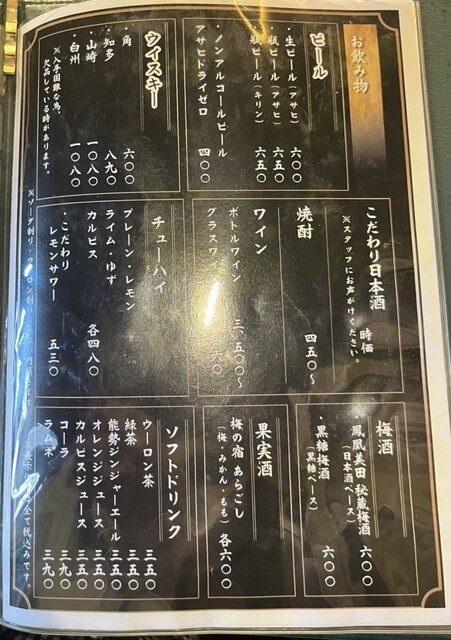 お飲み物
ビール
・生ビール（アサヒ） 六〇〇
・瓶ビール（アサヒ） 六五〇
・瓶ビール（キリン） 六五〇
・ノンアルコールビール
アサヒドライゼロ 四〇〇
ウイスキー
・角 六〇〇
・知多 八九〇
・山崎 一〇八〇
・白州 一〇八〇
※入手困難な為、
欠品している時があります。
こだわり日本酒 時価
※スタッフにお声がけください。
焼酎 四五〇～
ワイン
ボトルワイン 三、五〇〇～
グラスワイン
チューハイ
プレーン・レモン
ライム・ゆず
カルピス 各四八〇
・こだわり
レモンサワー 五三〇
梅酒
・鳳凰美田 秘蔵梅酒 六〇〇
（日本酒ベース）
・黒糖梅酒 六〇〇
（黒糖ベース）
果実酒
梅の宿 あらごし
（梅・みかん・もも） 各六〇〇
ソフトドリンク
ウーロン茶 三五〇
緑茶 三五〇
能勢ジンジャーエール 三五〇
オレンジジュース 三五〇
カルピスジュース 三五〇
コーラ 三九〇
ラムネ 三九〇
※ソーダ割り・ウーロン割り
表示 全て税込みです。